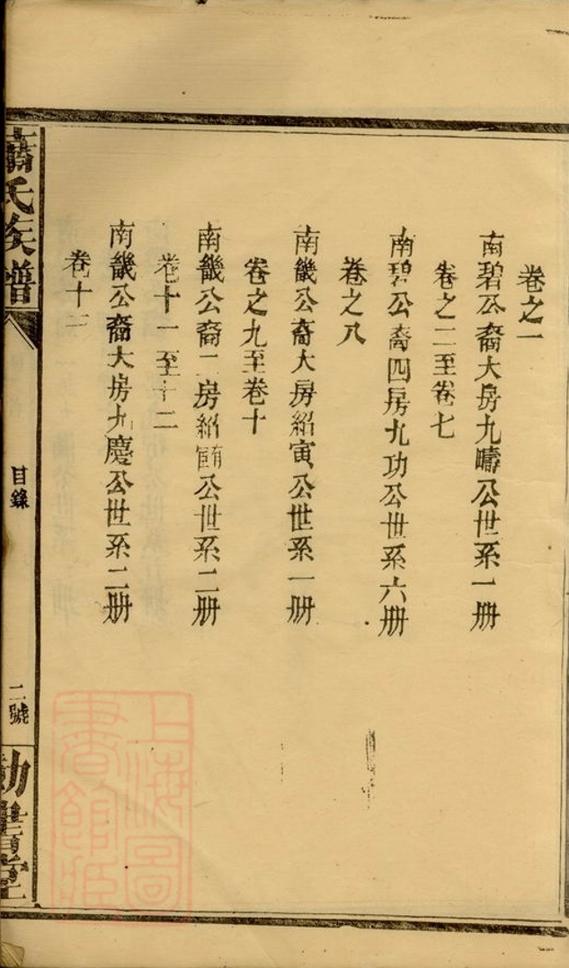 卷之一
南碧公裔大房九疇公世系一册
卷之二至卷七
南碧公裔四房九功公世系六册
卷之八
南畿公裔大房紹寅公世系一册
卷之九至卷十
南畿公裔二房紹公世系二册
卷十一至十二
南畿公裔大房九慶公世系二册
卷十
蕭氏族譜
目錄
二號
上海圖書館